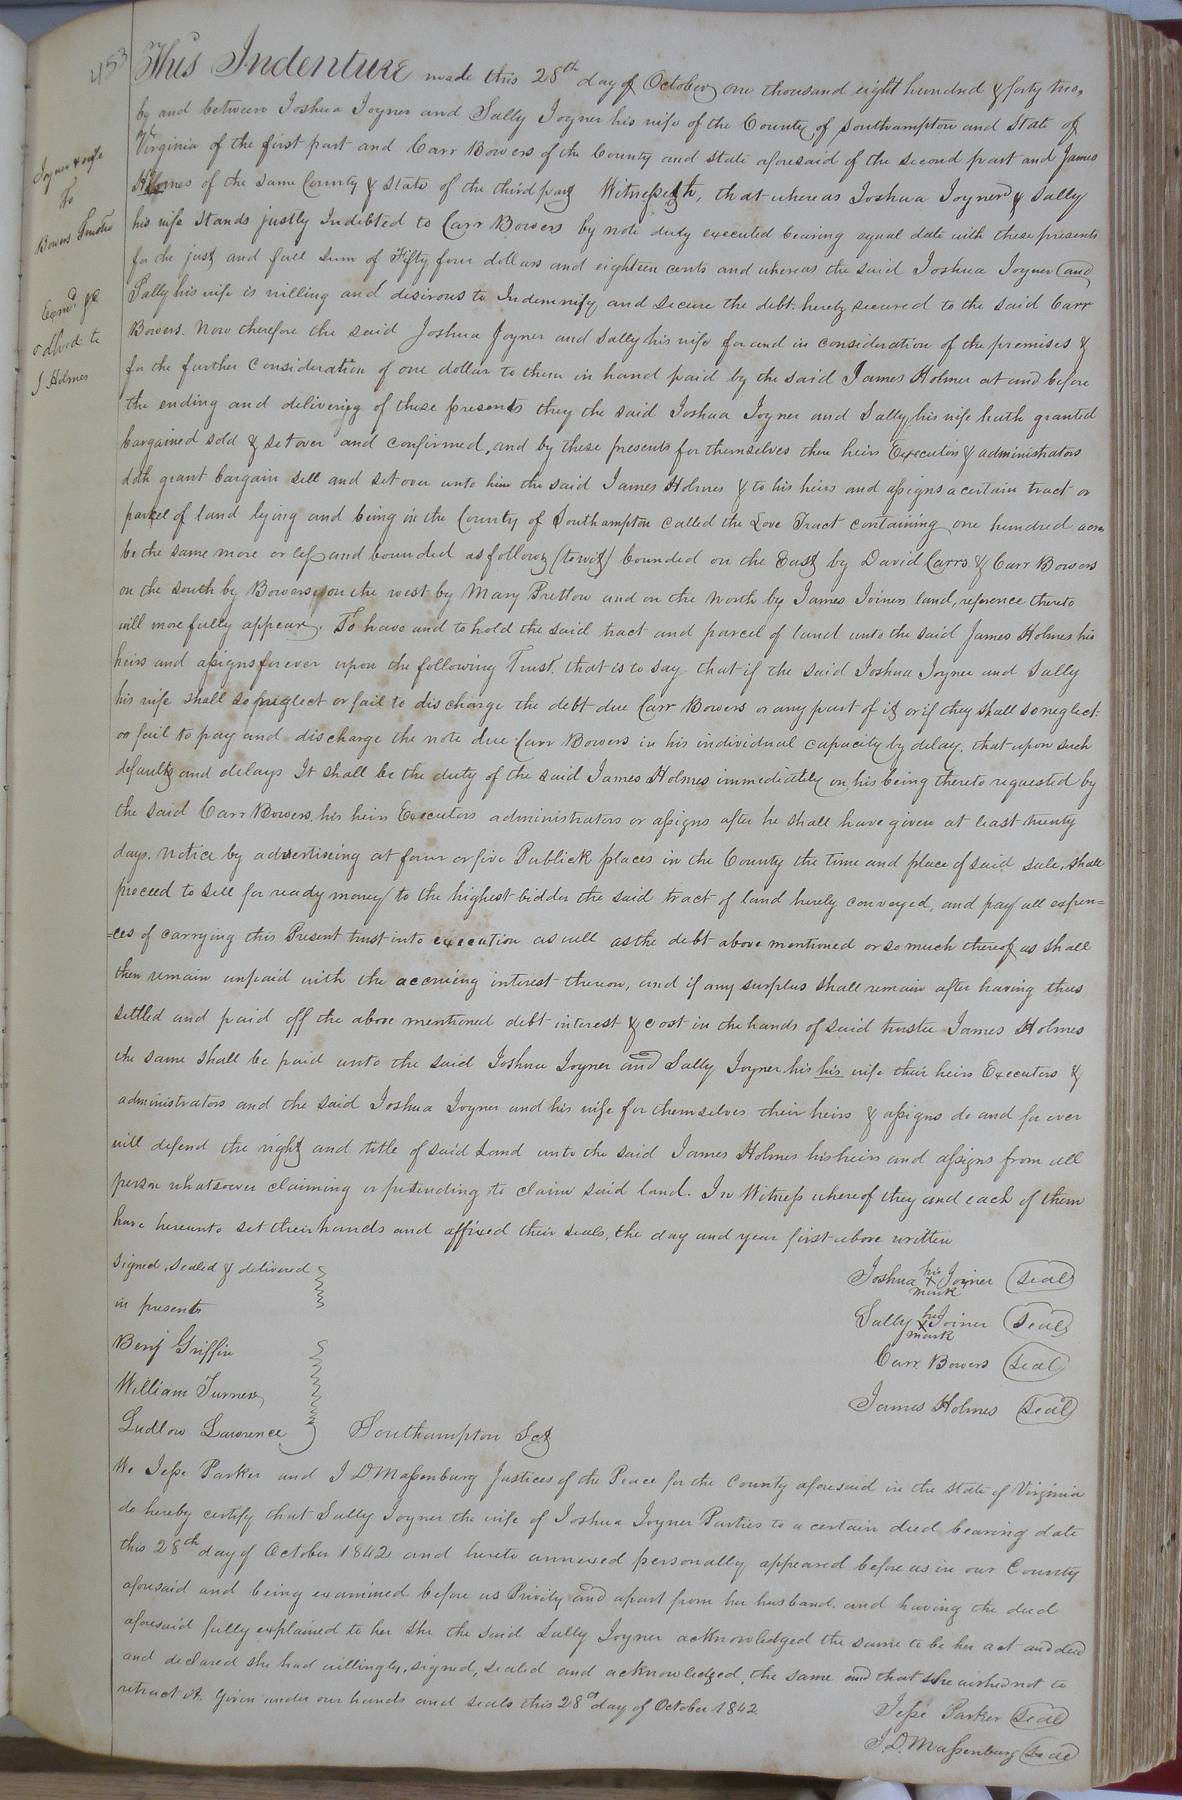 453
Joyner & wife
To
Bowers Trustee
Exmd. &
delivd to
J. Holmes
This Indenture made this 28th day of October one thousand eight hundred & forty two,
by and between Joshua Joyner and Sally Joyner his wife of the County of Southampton and State of
Virginia of the first part and Carr Bowers of the County and State aforesaid of the second part and James
Holmes of the same County & State of the third part Witnesseth, that whereas Joshua Joyner & Sally
his wife Stands justly Indebted to Carr Bowers by note duty executed bearing equal date with these presents
for the just and full sum of Fifty four dollars and eighteen cents and whereas the said Joshua Joyner and
Sally his wife is willing and desirous to Indemnify and secure the debt hereby secured to the said Carr
Bowers. Now therefore the said Joshua Joyner and Sally his wife for and in consideration of the premises &
for the further Consideration of one dollar to them in hand paid by the said James Holmes at and before
the ending and delivering of these presents they the said Joshua Joyner and Sally his wife hath granted
bargained sold & set over and confirmed, and by these presents for themselves there heirs Executors & administrators
doth grant bargain sell and set over unto him the said James Holmes & to his heirs and assigns a certain tract or
parcel of land lying and being in the County of Southampton called the Love Tract containing one hundred acres
be the same more or less and bounded as follows (to wit) bounded on the East by David Carrs & Carr Bowers
on the south by Bowers, on the west by Mary Pretlow and on the North by James Joiners land, reference thereto
will more fully appear. To have and to hold the said tract and parcel of land unto the said James Holmes his
heirs and assigns forever upon the following Trust, that is to say that if the said Joshua Joyner and Sally
his wife shall so neglect or fail to discharge the debt due Carr Bowers or any part of it or if they shall so neglect
or fail to pay and discharge the note due Carr Bowers in his individual capacity by delay, that upon such
default and delays It shall be the duty of the said James Holmes immediately on his being thereto requested by
the said Carr Bowers, his heirs Executors administrators or assigns after he shall have given at least twenty
days, notice by advertising at four or five Publick places in the County the time and place of said sale, shall
proceed to sell for ready money to the highest bidder the said tract of land hereby conveyed, and pay all expen=
=ces of carrying this Present trust into execution as well as the debt above mentioned or so much thereof as shall
then remain unpaid with the accruing interest thereon, and if any surplus shall remain after having thus
settled and paid off the above mentioned debt interest & cost in the hands of said trustee James Holmes
the same shall be paid unto the said Joshua Joyner and Sally Joyner his his wife their heirs Executors &
administrators and the said Joshua Joyner and his wife for themselves their heirs & assigns do and for ever
will defend the right and title of said Land unto the said James Holmes his heirs and assigns from all
person whatsoever claiming or pretending to claim said land. In Witness whereof they and each of them
have hereunto set their hands and affixed their seals, the day and year first above written
Signed, sealed & delivered
in presents
Benj Griffin
William Turner
Ludlow Lawrence
Joshua his x mark Joyner (Seal)
Sally her x mark Joiner (Seal)
Carr Bowers (Seal)
James Holmes (Seal)
Southampton Sct
We Jesse Parker and J D Massenburg Justices of the Peace for the County aforesaid in the State of Virginia
do hereby certify that Sally Joyner the wife of Joshua Joyner Parties to a certain deed bearing date
this 28th day of October 1842 and hereto annexed personally appeared before us in our County
aforesaid and being examined before us Privily and apart from her husband, and having the deed
aforesaid fully explained to her she the said Sally Joyner acknowledged the same to be her act and deed
and declared she had willingly, signed, sealed and acknowledged, the same and that she wished not to
retract it. Given under our hands and seals this 28th day of October 1842
Jesse Parker (Seal)
J. D. Massenburg (Seal)